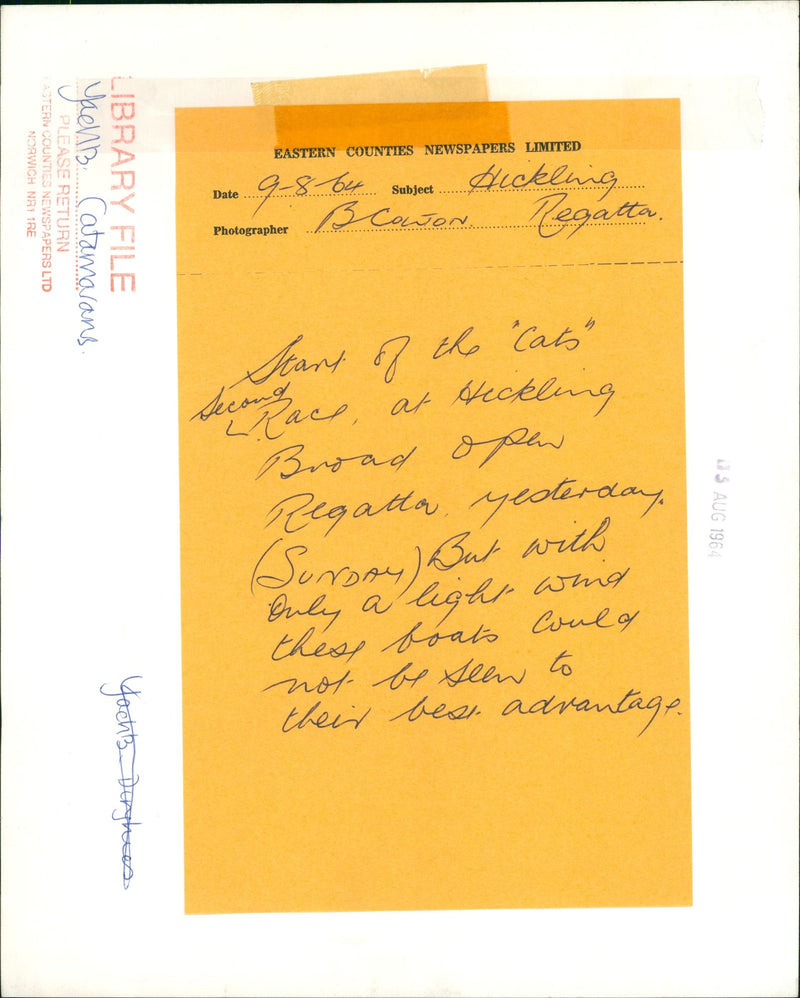 EASTERN COUNTIES NEWSPAPERS LIMITED
Date 9-8-64 Subject Hickling
Photographer Regatta.
Start of the "Cats"
Second
Race, at Hickling
Broad open
Regatta, yesterday.
(SUNDAY) But with
only a light wind
these boats could
not be seen to
their best advantage.
LIBRARY FILE
PLEASE RETURN
EASTERN COUNTIES NEWSPAPERS LTD
NORWICH NR1 1RE
Yachts. Catamarans.
Yachts-Dinghies
AUG 1964